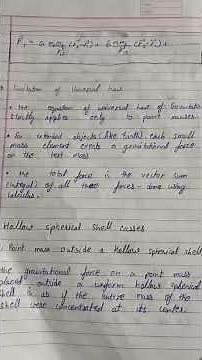 Limitation of Universal Law
• The equation of universal law of Gravitation
strictly applies only to point masses.
• For extended objects (like Earth) each small
mass element exerts a gravitational force
on the test mass
• The total force is the vector sum
of all these forces - done using
calculus.
Hollow spherical shell cases
Point mass outside a Hollow spherical shell
The gravitational force on a point mass
placed outside a uniform hollow spherical
shell is as if the entire mass of the
shell were concentrated at its center.